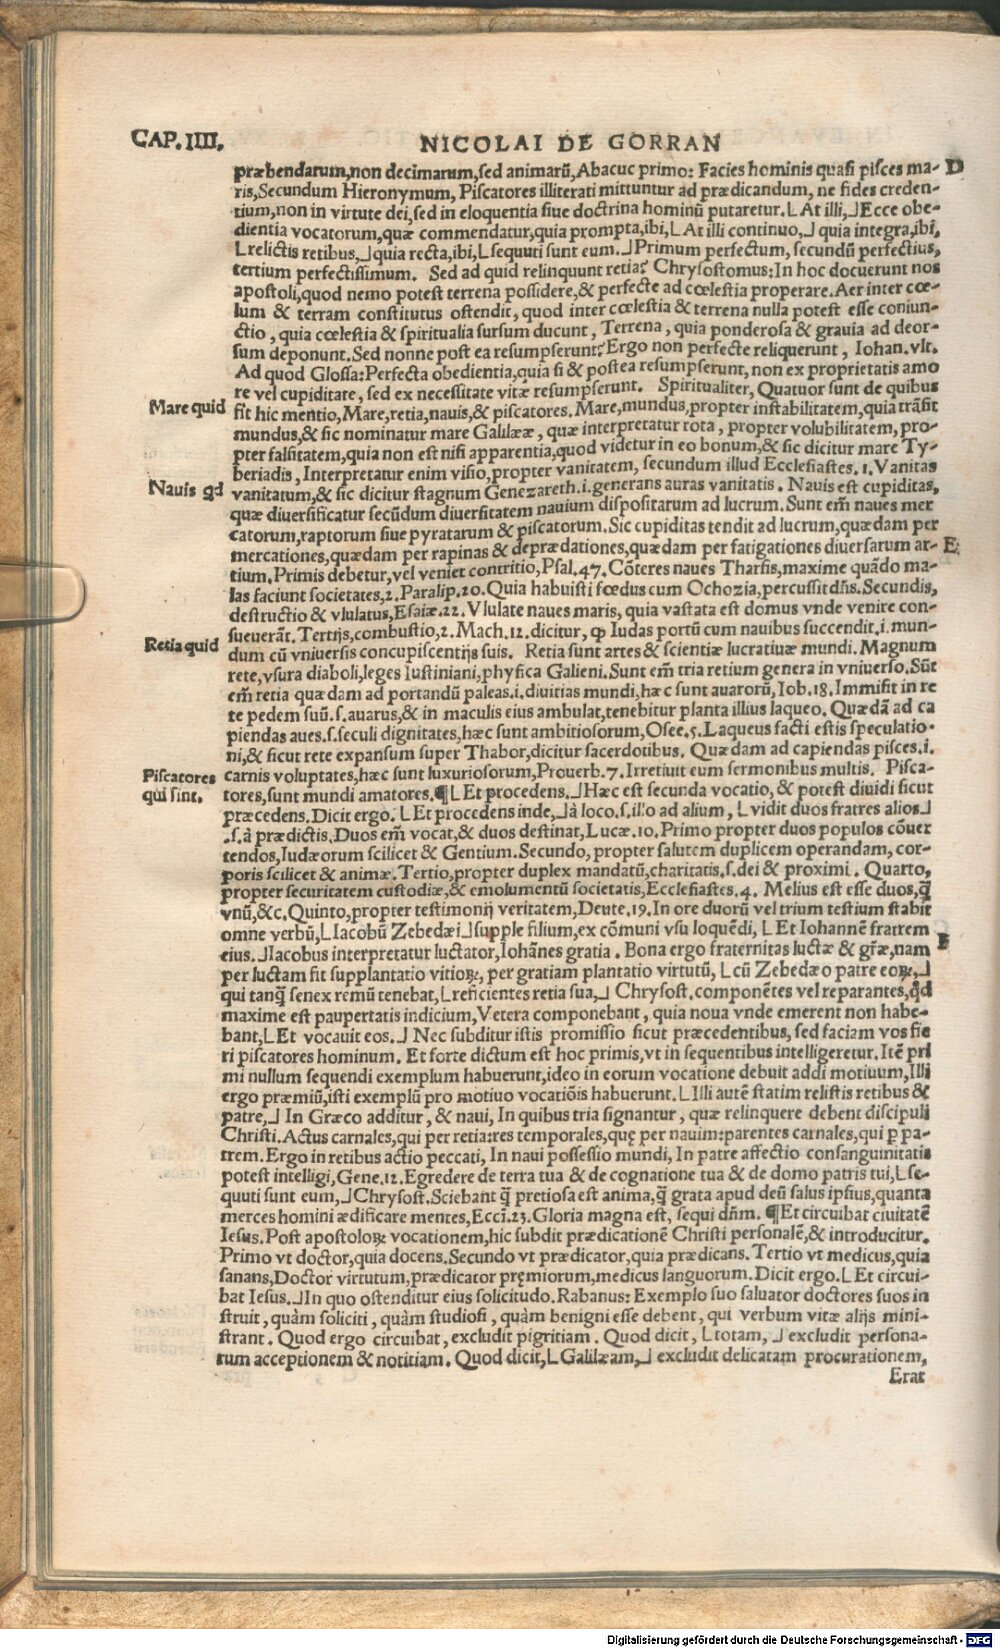 CAP. IIII.
NICOLAI DE GORRAN
præbendarum, non decimarum, sed animarū, Abacuc primo: Facies hominis quasi pisces ma- D
ris, Secundum Hieronymum, Piscatores illiterati mittuntur ad prædicandum, ne fides creden-
tium, non in virtute dei, sed in eloquentia siue doctrina hominū putaretur. L At illi, ⅃ Ecce obe-
dientia vocatorum, quæ commendatur, quia prompta, ibi, L At illi continuo, ⅃ quia integra, ibi,
L relictis retibus, ⅃ quia recta, ibi, L sequuti sunt eum. ⅃ Primum perfectum, secundū perfectius,
tertium perfectissimum. Sed ad quid relinquunt retia? Chrysostomus: In hoc docuerunt nos
apostoli, quod nemo potest terrena possidere, & perfecte ad cœlestia properare. Aer inter cœ-
lum & terram constitutus ostendit, quod inter cœlestia & terrena nulla potest esse coniun-
ctio, quia cœlestia & spiritualia sursum ducunt, Terrena, quia ponderosa & grauia ad deor-
sum deponunt. Sed nonne post ea resumpserunt? Ergo non perfecte reliquerunt, Iohan. vlt.
Ad quod Glossa: Perfecta obedientia, quia si & postea resumpserunt, non ex proprietatis amo
re vel cupiditate, sed ex necessitate vitæ resumpserunt. Spiritualiter, Quatuor sunt de quibus
Mare quid
fit hic mentio, Mare, retia, nauis, & piscatores. Mare, mundus, propter instabilitatem, quia trāsit
mundus, & sic nominatur mare Galilææ, quæ interpretatur rota, propter volubilitatem, pro-
pter falsitatem, quia non est nisi apparentia, quod videtur in eo bonum, & sic dicitur mare Ty-
beriadis, Interpretatur enim visio, propter vanitatem, secundum illud Ecclesiastes. 1. Vanitas
Nauis qd
vanitatum, & sic dicitur stagnum Genezareth. i. generans auras vanitatis. Nauis est cupiditas,
quæ diuersificatur secūdum diuersitatem nauium dispositarum ad lucrum. Sunt em̄ naues mer
catorum, raptorum siue pyratarum & piscatorum. Sic cupiditas tendit ad lucrum, quædam per
mercationes, quædam per rapinas & deprædationes, quædam per fatigationes diuersarum ar- E
tium. Primis debetur, vel veniet contritio, Psal. 47. Cōteres naues Tharsis, maxime quādo ma-
las faciunt societates, 2. Paralip. 20. Quia habuisti fœdus cum Ochozia, percussit dn̄s. Secundis,
destructio & vlulatus, Esaiæ. 22. Vlulate naues maris, quia vastata est domus vnde venire con-
sueuerāt. Tertijs, combustio, 2. Mach. 12. dicitur, ꝙ Iudas portū cum nauibus succendit. i. mun-
Retia quid
dum cū vniuersis concupiscentijs suis. Retia sunt artes & scientiæ lucratiuæ mundi. Magnum
rete, vsura diaboli, leges Iustiniani, physica Galieni. Sunt em̄ tria retium genera in vniuerso. Sūt
em̄ retia quædam ad portandū paleas. i. diuitias mundi, hæc sunt auarorū, Iob. 18. Immisit in re
te pedem suū. s. auarus, & in maculis eius ambulat, tenebitur planta illius laqueo. Quædā ad ca
piendas aues. s. seculi dignitates, hæc sunt ambitiosorum, Osee. 5. Laqueus facti estis speculatio-
ni, & sicut rete expansum super Thabor, dicitur sacerdotibus. Quædam ad capiendas pisces. i.
Piscatores
qui sint.
carnis voluptates, hæc sunt luxuriosorum, Prouerb. 7. Irretiuit eum sermonibus multis. Pisca-
tores, sunt mundi amatores. ¶ L Et procedens. ⅃ Hæc est secunda vocatio, & potest diuidi sicut
præcedens. Dicit ergo. L Et procedens inde, ⅃ à loco. s. illo ad alium, L vidit duos fratres alios ⅃
. s. à prædictis. Duos em̄ vocat, & duos destinat, Lucæ. 10. Primo propter duos populos cōuer
tendos, Iudæorum scilicet & Gentium. Secundo, propter salutem duplicem operandam, cor-
poris scilicet & animæ. Tertio, propter duplex mandatū, charitatis. s. dei & proximi. Quarto,
propter securitatem custodiæ, & emolumentū societatis, Ecclesiastes. 4. Melius est esse duos, q̄
vnū, &c. Quinto, propter testimonij veritatem, Deute. 19. In ore duorū vel trium testium stabit
omne verbū, L Iacobū Zebedæi ⅃ supple filium, ex cōmuni vsu loquēdi, L Et Iohannē fratrem F
eius. ⅃ Iacobus interpretatur luctator, Iohānes gratia. Bona ergo fraternitas luctæ & gr̄æ, nam
per luctam fit supplantatio vitioꝝ, per gratiam plantatio virtutū, L cū Zebedæo patre eoꝝ, ⅃
qui tanq̄ senex remū tenebat, L reficientes retia sua, ⅃ Chrysost. componētes vel reparantes, qd
maxime est paupertatis indicium, Vetera componebant, quia noua vnde emerent non habe-
bant, L Et vocauit eos. ⅃ Nec subditur istis promissio sicut præcedentibus, sed faciam vos fie
ri piscatores hominum. Et forte dictum est hoc primis, vt in sequentibus intelligeretur. Itē pri
mi nullum sequendi exemplum habuerunt, ideo in eorum vocatione debuit addi motiuum, Illi
ergo præmiū, isti exemplū pro motiuo vocatiōis habuerunt. L Illi autē statim relistis retibus &
patre, ⅃ In Græco additur, & naui, In quibus tria signantur, quæ relinquere debent discipuli
Christi. Actus carnales, qui per retia: res temporales, quę per nauim: parentes carnales, qui ꝑ pa-
trem. Ergo in retibus actio peccati, In naui possessio mundi, In patre affectio consanguinitatis
potest intelligi, Gene. 12. Egredere de terra tua & de cognatione tua & de domo patris tui, L se-
quuti sunt eum, ⅃ Chrysost. Sciebant q̄ pretiosa est anima, q̄ grata apud deū salus ipsius, quanta
merces homini ædificare mentes, Ecci. 23. Gloria magna est, sequi dn̄m. ¶ Et circuibat ciuitatē
Iesus. Post apostoloꝝ vocationem, hic subdit prædicationē Christi personalē, & introducitur.
Primo vt doctor, quia docens. Secundo vt prædicator, quia prædicans. Tertio vt medicus, quia
sanans, Doctor virtutum, prædicator pręmiorum, medicus languorum. Dicit ergo. L Et circui-
bat Iesus. ⅃ In quo ostenditur eius solicitudo. Rabanus: Exemplo suo saluator doctores suos in
struit, quàm soliciti, quàm studiosi, quàm benigni esse debent, qui verbum vitæ alijs mini-
strant. Quod ergo circuibat, excludit pigritiam. Quod dicit, L totam, ⅃ excludit persona-
rum acceptionem & notitiam. Quod dicit, L Galilæam, ⅃ excludit delicatam procurationem,
Erat
Digitalisierung gefördert durch die Deutsche Forschungsgemeinschaft - DFG